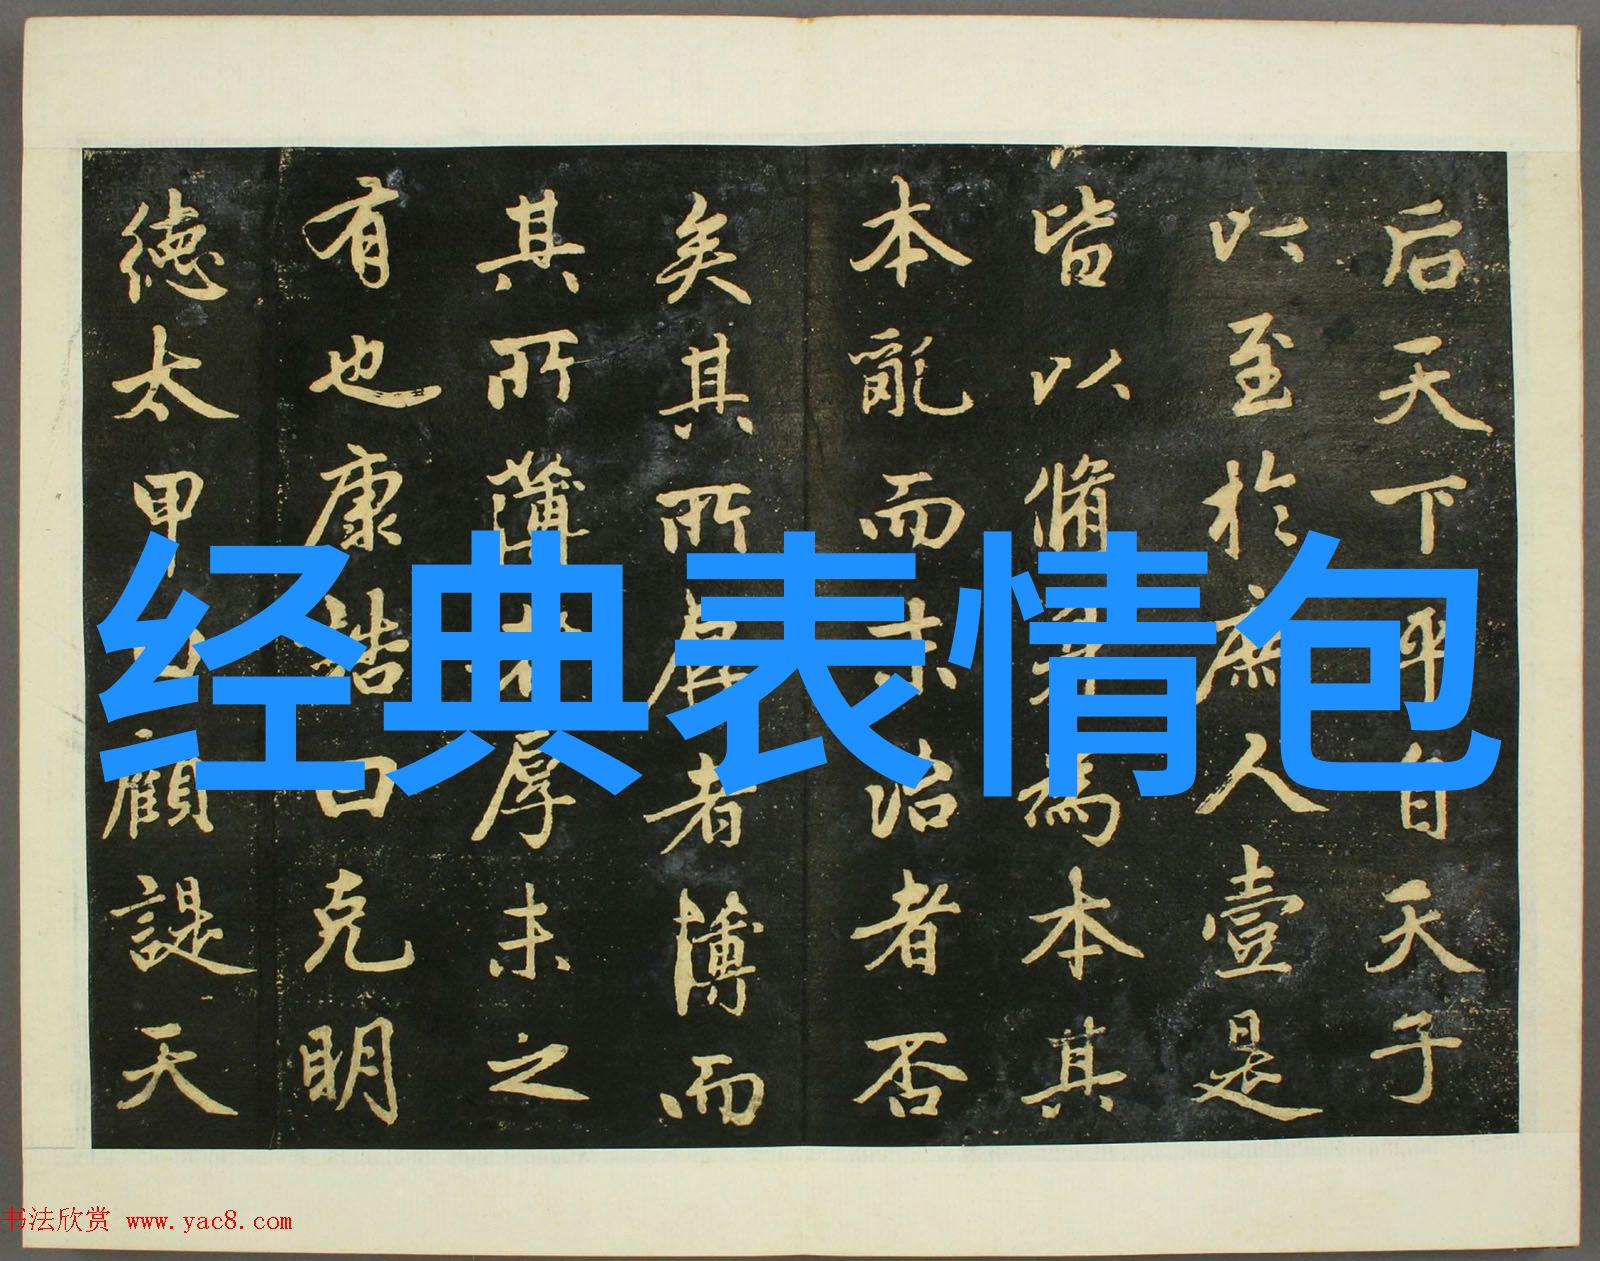 后天下平自天子
以至於庶人壹是
皆以脩身為本其
本亂而末治者否
矣其所厚者薄而
其所薄者厚未之
有也康誥曰克明
德太甲曰顧諟天
经典表情包
书法欣赏 www.yac8.com